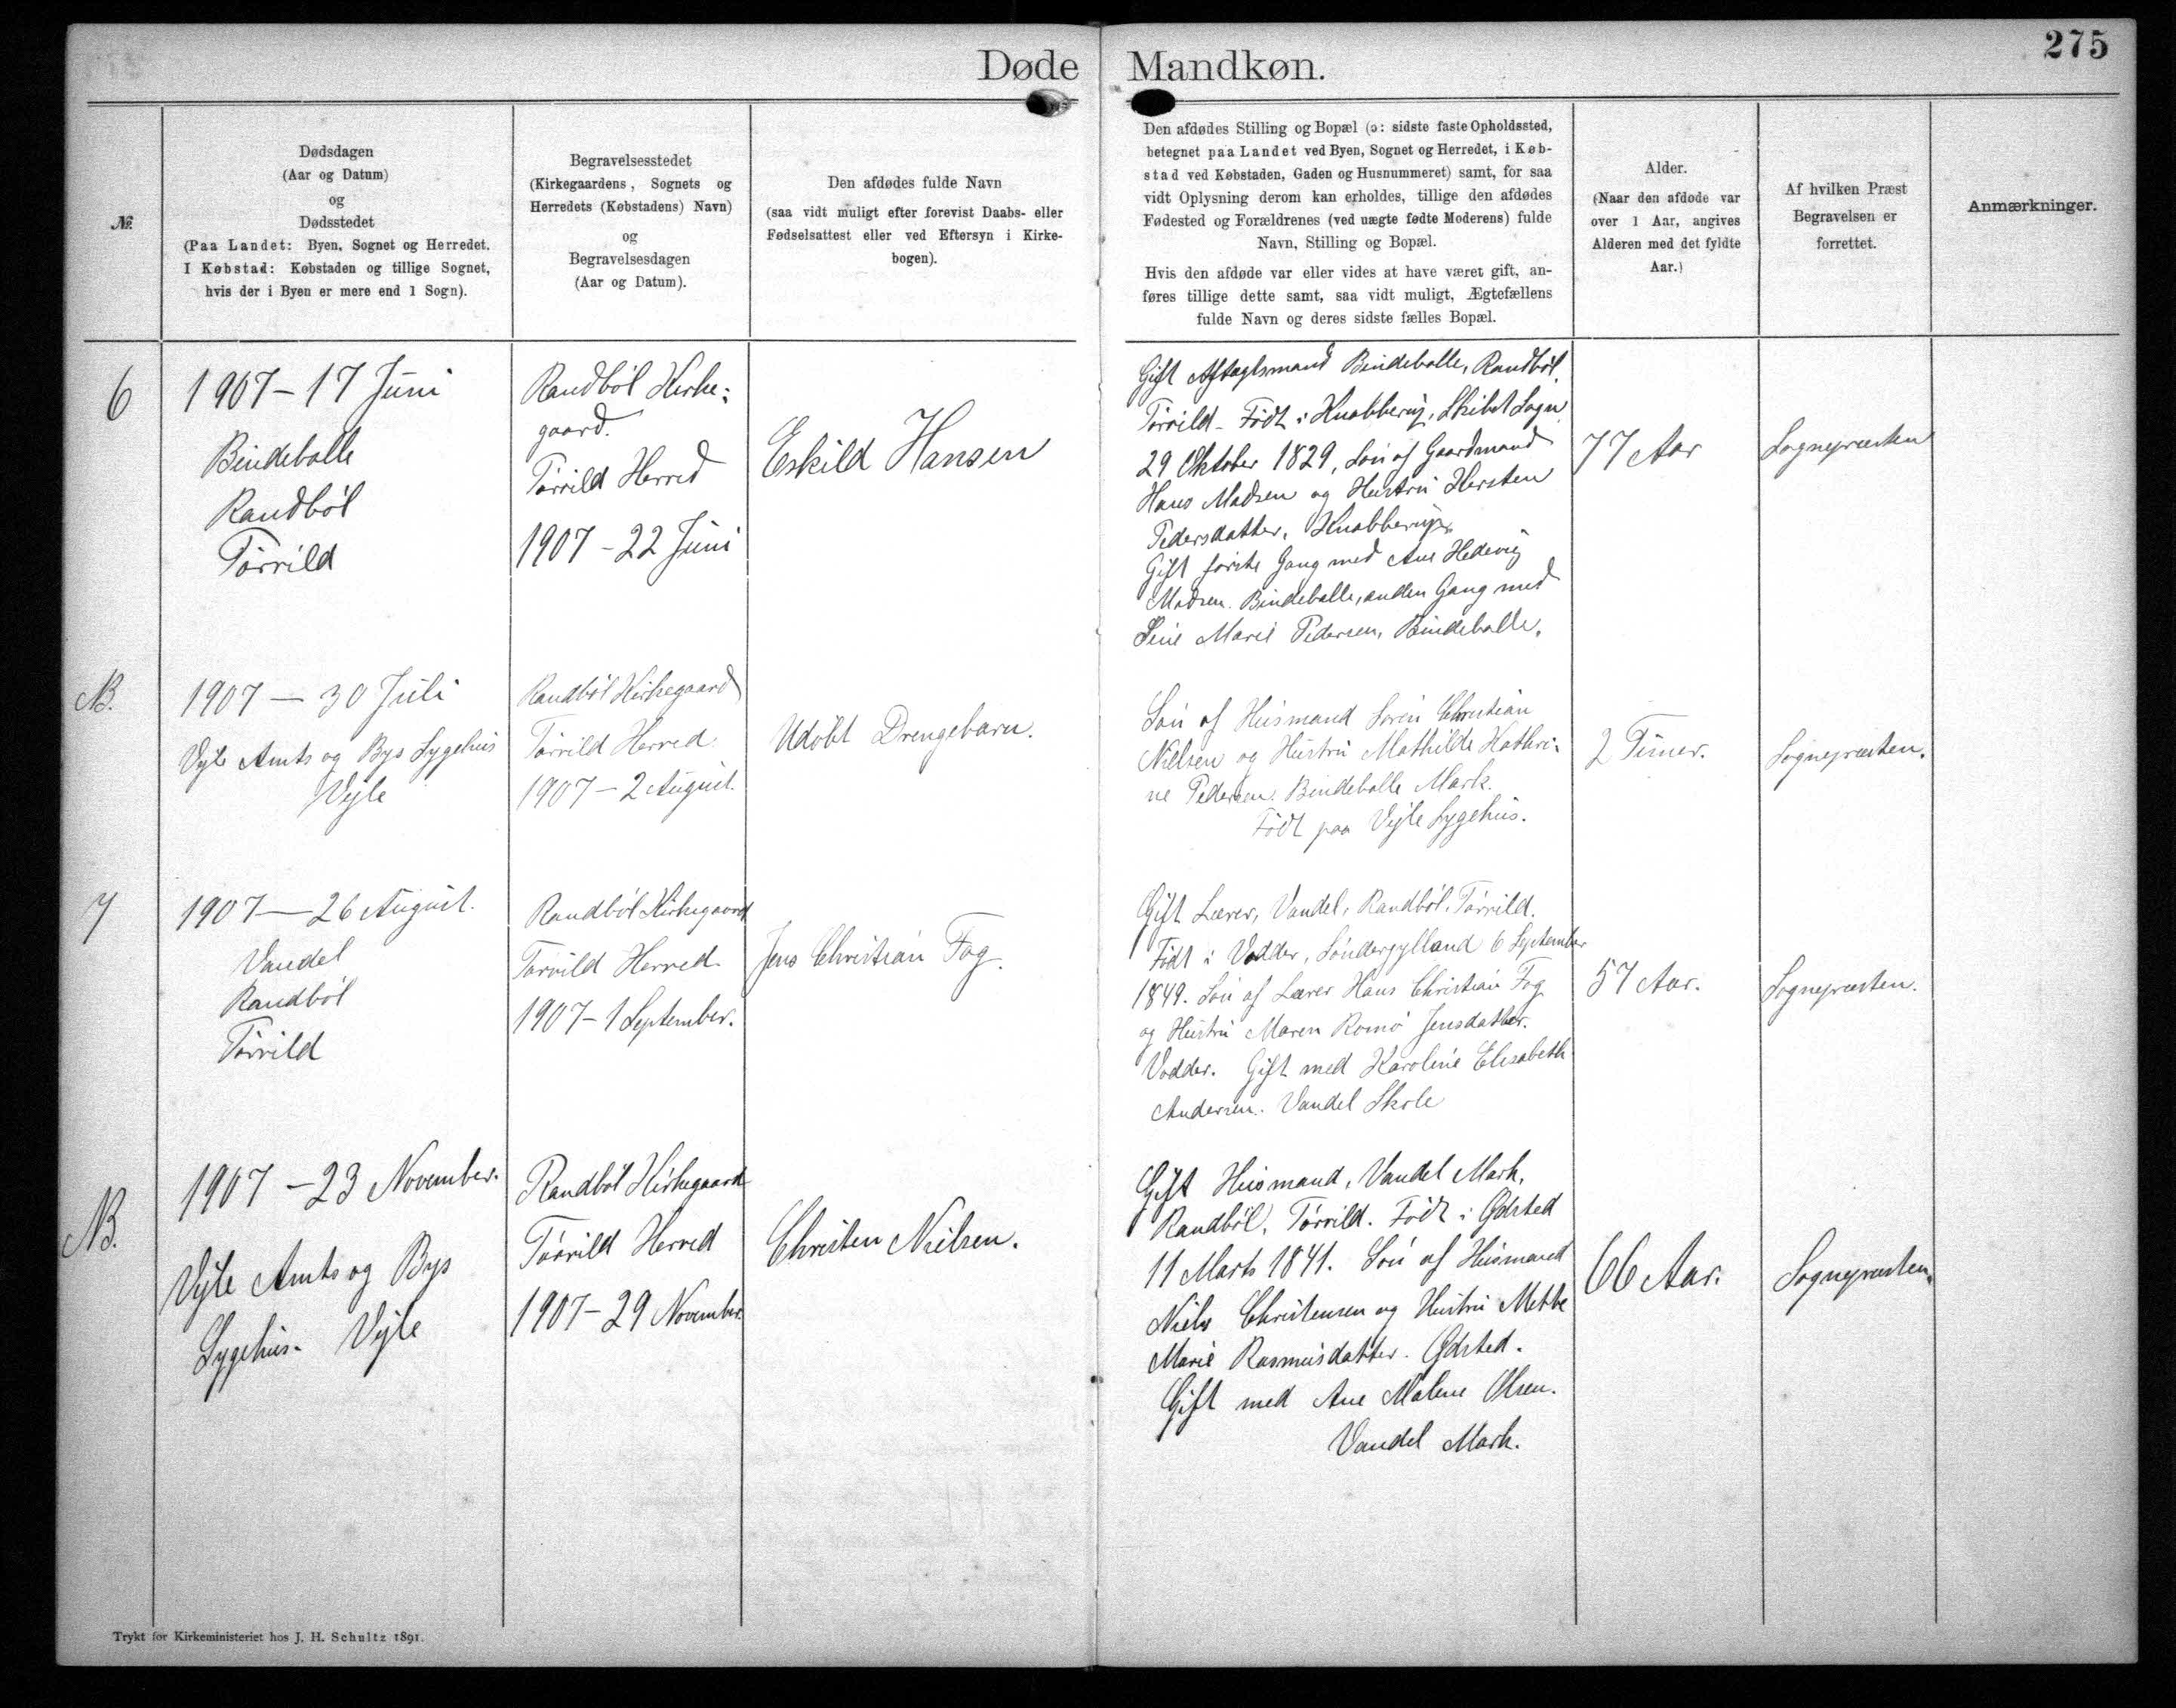 Døde Mandkøn.
275
№
Dødsdagen
(Aar og Datum)
og
Dødsstedet
(Paa Landet: Byen, Sognet og Herredet.
I Købstad: Købstaden og tillige Sognet,
hvis der i Byen er mere end 1 Sogn).
Begravelsesstedet
(Kirkegaardens, Sognets og
Herredets (Købstadens) Navn)
og
Begravelsesdagen
(Aar og Datum).
Den afdødes fulde Navn
(saa vidt muligt efter forevist Daabs- eller
Fødselsattest eller ved Eftersyn i Kirke-
bogen).
Den afdødes Stilling og Bopæl (ɔ: sidste faste Opholdssted,
betegnet paa Landet ved Byen, Sognet og Herredet, i Køb-
stad ved Købstaden, Gaden og Husnummeret) samt, for saa
vidt Oplysning derom kan erholdes, tillige den afdødes
Fødested og Forældrenes (ved uægte fødte Moderens) fulde
Navn, Stilling og Bopæl.
Hvis den afdøde var eller vides at have været gift, an-
føres tillige dette samt, saa vidt muligt, Ægtefællens
fulde Navn og deres sidste fælles Bopæl.
Alder.
(Naar den afdøde var
over 1 Aar, angives
Alderen med det fyldte
Aar.)
Af hvilken Præst
Begravelsen er
forrettet.
Anmærkninger.
6
1907 – 17 Juni
Bindeballe
Randbøl
Tørrild
Randbøl Kirke=
gaard.
Tørrild Herred
1907 – 22 Juni
Eskild Hansen
Gift Aftægtsmand Bindeballe, Randbøl,
Tørrild – Født i Knabberup, Skibet Sogn
29 Oktober 1829, Søn af Gaardmand
Hans Madsen og Hustru Kersten
Pedersdatter, Knabberup.
Gift første Gang med Ane Hedevig
Madsen. Bindeballe, anden Gang med
Sine Marie Pedersen, Bindeballe.
77 Aar
Sognepræsten
NB.
1907 – 30 Juli
Vejle Amts og Bys Sygehus
Vejle
Randbøl Kirkegaard
Tørrild Herred
1907 – 2 August.
Udøbt Drengebarn.
Søn af Husmand Søren Christian
Nielsen og Hustru Mathilde Kathri=
ne Pedersen. Bindeballe Mark.
Født paa Vejle Sygehus.
2 Timer.
Sognepræsten.
7
1907 – 26 August.
Vandel
Randbøl
Tørrild
Randbøl Kirkegaard
Tørrild Herred
1907 – 1 September.
Jens Christian Fog.
Gift Lærer, Vandel, Randbøl, Tørrild.
Født i Vodder, Sønderjylland 6 September
1849. Søn af Lærer Hans Christian Fog
og Hustru Maren Romø Jensdatter.
Vodder. Gift med Karoline Elisabeth
Andersen. Vandel Skole
57 Aar.
Sognepræsten.
NB.
1907 – 23 November.
Vejle Amts og Bys
Sygehus. Vejle
Randbøl Kirkegaard
Tørrild Herred
1907 – 29 November.
Christen Nielsen.
Gift Husmand, Vandel Mark,
Randbøl, Tørrild. Født i Gdsted
11 Marts 1841. Søn af Husmand
Niels Christensen og Hustru Mette
Marie Rasmusdatter. Gdsted.
Gift med Ane Malene Olsen.
Vandel Mark.
66 Aar.
Sognepræsten.
Trykt for Kirkeministeriet hos J. H. Schultz 1891.